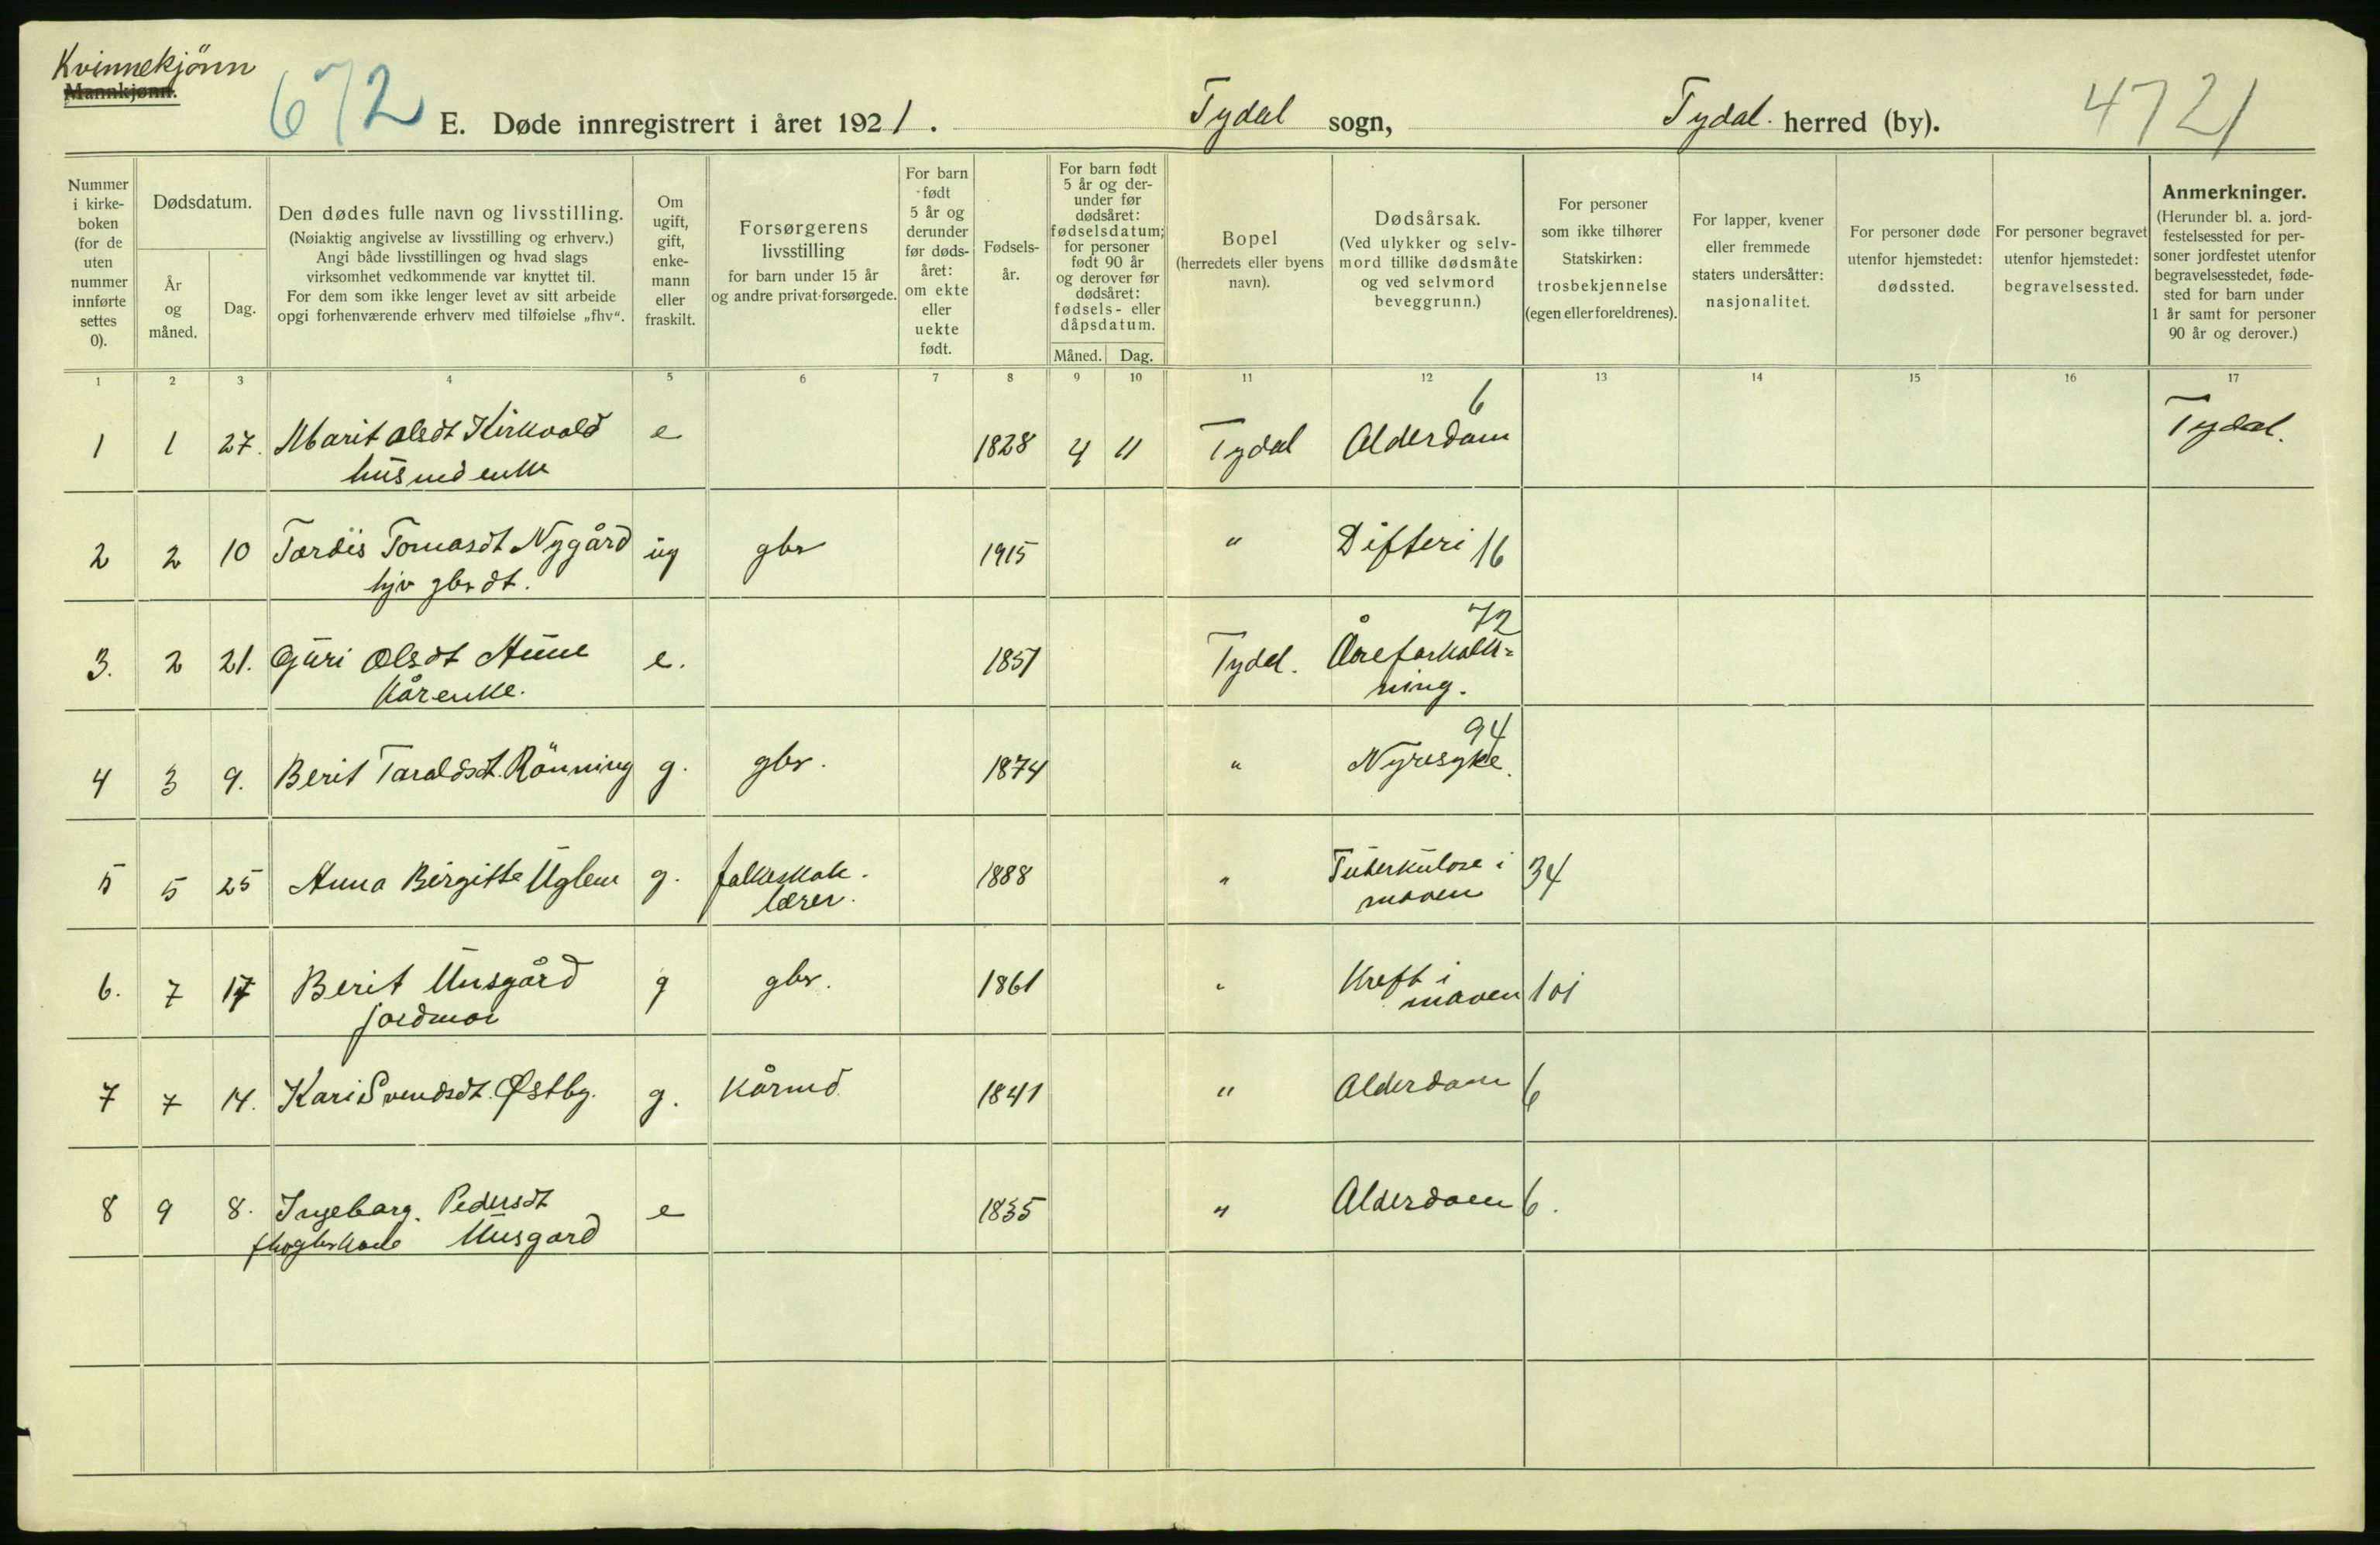 Kvinnekjönn
Mannkjønn.
672
E. Døde innregistrert i året 1921.
Tydal sogn,
Tydal. herred (by).
4721
Nummer i kirke-boken (for de uten nummer innførte settes 0).
Dødsdatum.
År og måned.
Dag.
Den dødes fulle navn og livsstilling.
(Nøiaktig angivelse av livsstilling og erhverv.)
Angi både livsstillingen og hvad slags
virksomhet vedkommende var knyttet til.
For dem som ikke lenger levet av sitt arbeide
opgi forhenværende erhverv med tilføielse „fhv“.
Om ugift, gift, enke-mann eller fraskilt.
Forsørgerens livsstilling
for barn under 15 år
og andre privat-forsørgede.
For barn født 5 år og derunder før døds-året: om ekte eller uekte født.
Fødsels-år.
For barn født 5 år og der-under før dødsåret: fødselsdatum; for personer født 90 år og derover før dødsåret: fødsels- eller dåpsdatum.
Måned. Dag.
Bopel
(herredets eller byens navn).
Dødsårsak.
(Ved ulykker og selv-mord tillike dødsmåte og ved selvmord beveggrunn.)
For personer som ikke tilhører Statskirken: trosbekjennelse (egen eller foreldrenes).
For lapper, kvener eller fremmede staters undersåtter: nasjonalitet.
For personer døde utenfor hjemstedet: dødssted.
For personer begravet utenfor hjemstedet: begravelsessted.
Anmerkninger.
(Herunder bl. a. jord-festelsessted for per-soner jordfestet utenfor begravelsesstedet, føde-sted for barn under 1 år samt for personer 90 år og derover.)
1 2 3 4 5 6 7 8 9 10 11 12 13 14 15 16 17
1 1 27. Marit Olsdt Kirkvold e 1828 4 11 Tydal Alderdom 6 Tydal.
husmd enke
2 2 10 Tordis Tomasdt Nygård ug gbr 1915 " Difteri 16
hjv gbr dt.
3. 2 21. Guri Olsdt Aune e. 1851 Tydal. Åreforkalk= 72
kårenke. ning.
4 3 9. Berit Taraldsdt. Rönning g. gbr. 1874 " Nyresyke. 94
5 5 25 Anna Birgitte Uglem g. folkeskole. 1888 " Tuberkulose i 34
lærer. maven
6. 7 17 Berit Unsgård g gbr. 1861 " Kreft i 101
jordmor maven
7 7 14. Kari Svendsdt. Østby. g. Kårmd 1841 " Alderdom 6
8 9 8. Ingeborg Pedersdt e 1835 " Alderdom 6.
fhvgbrkone Unsgard